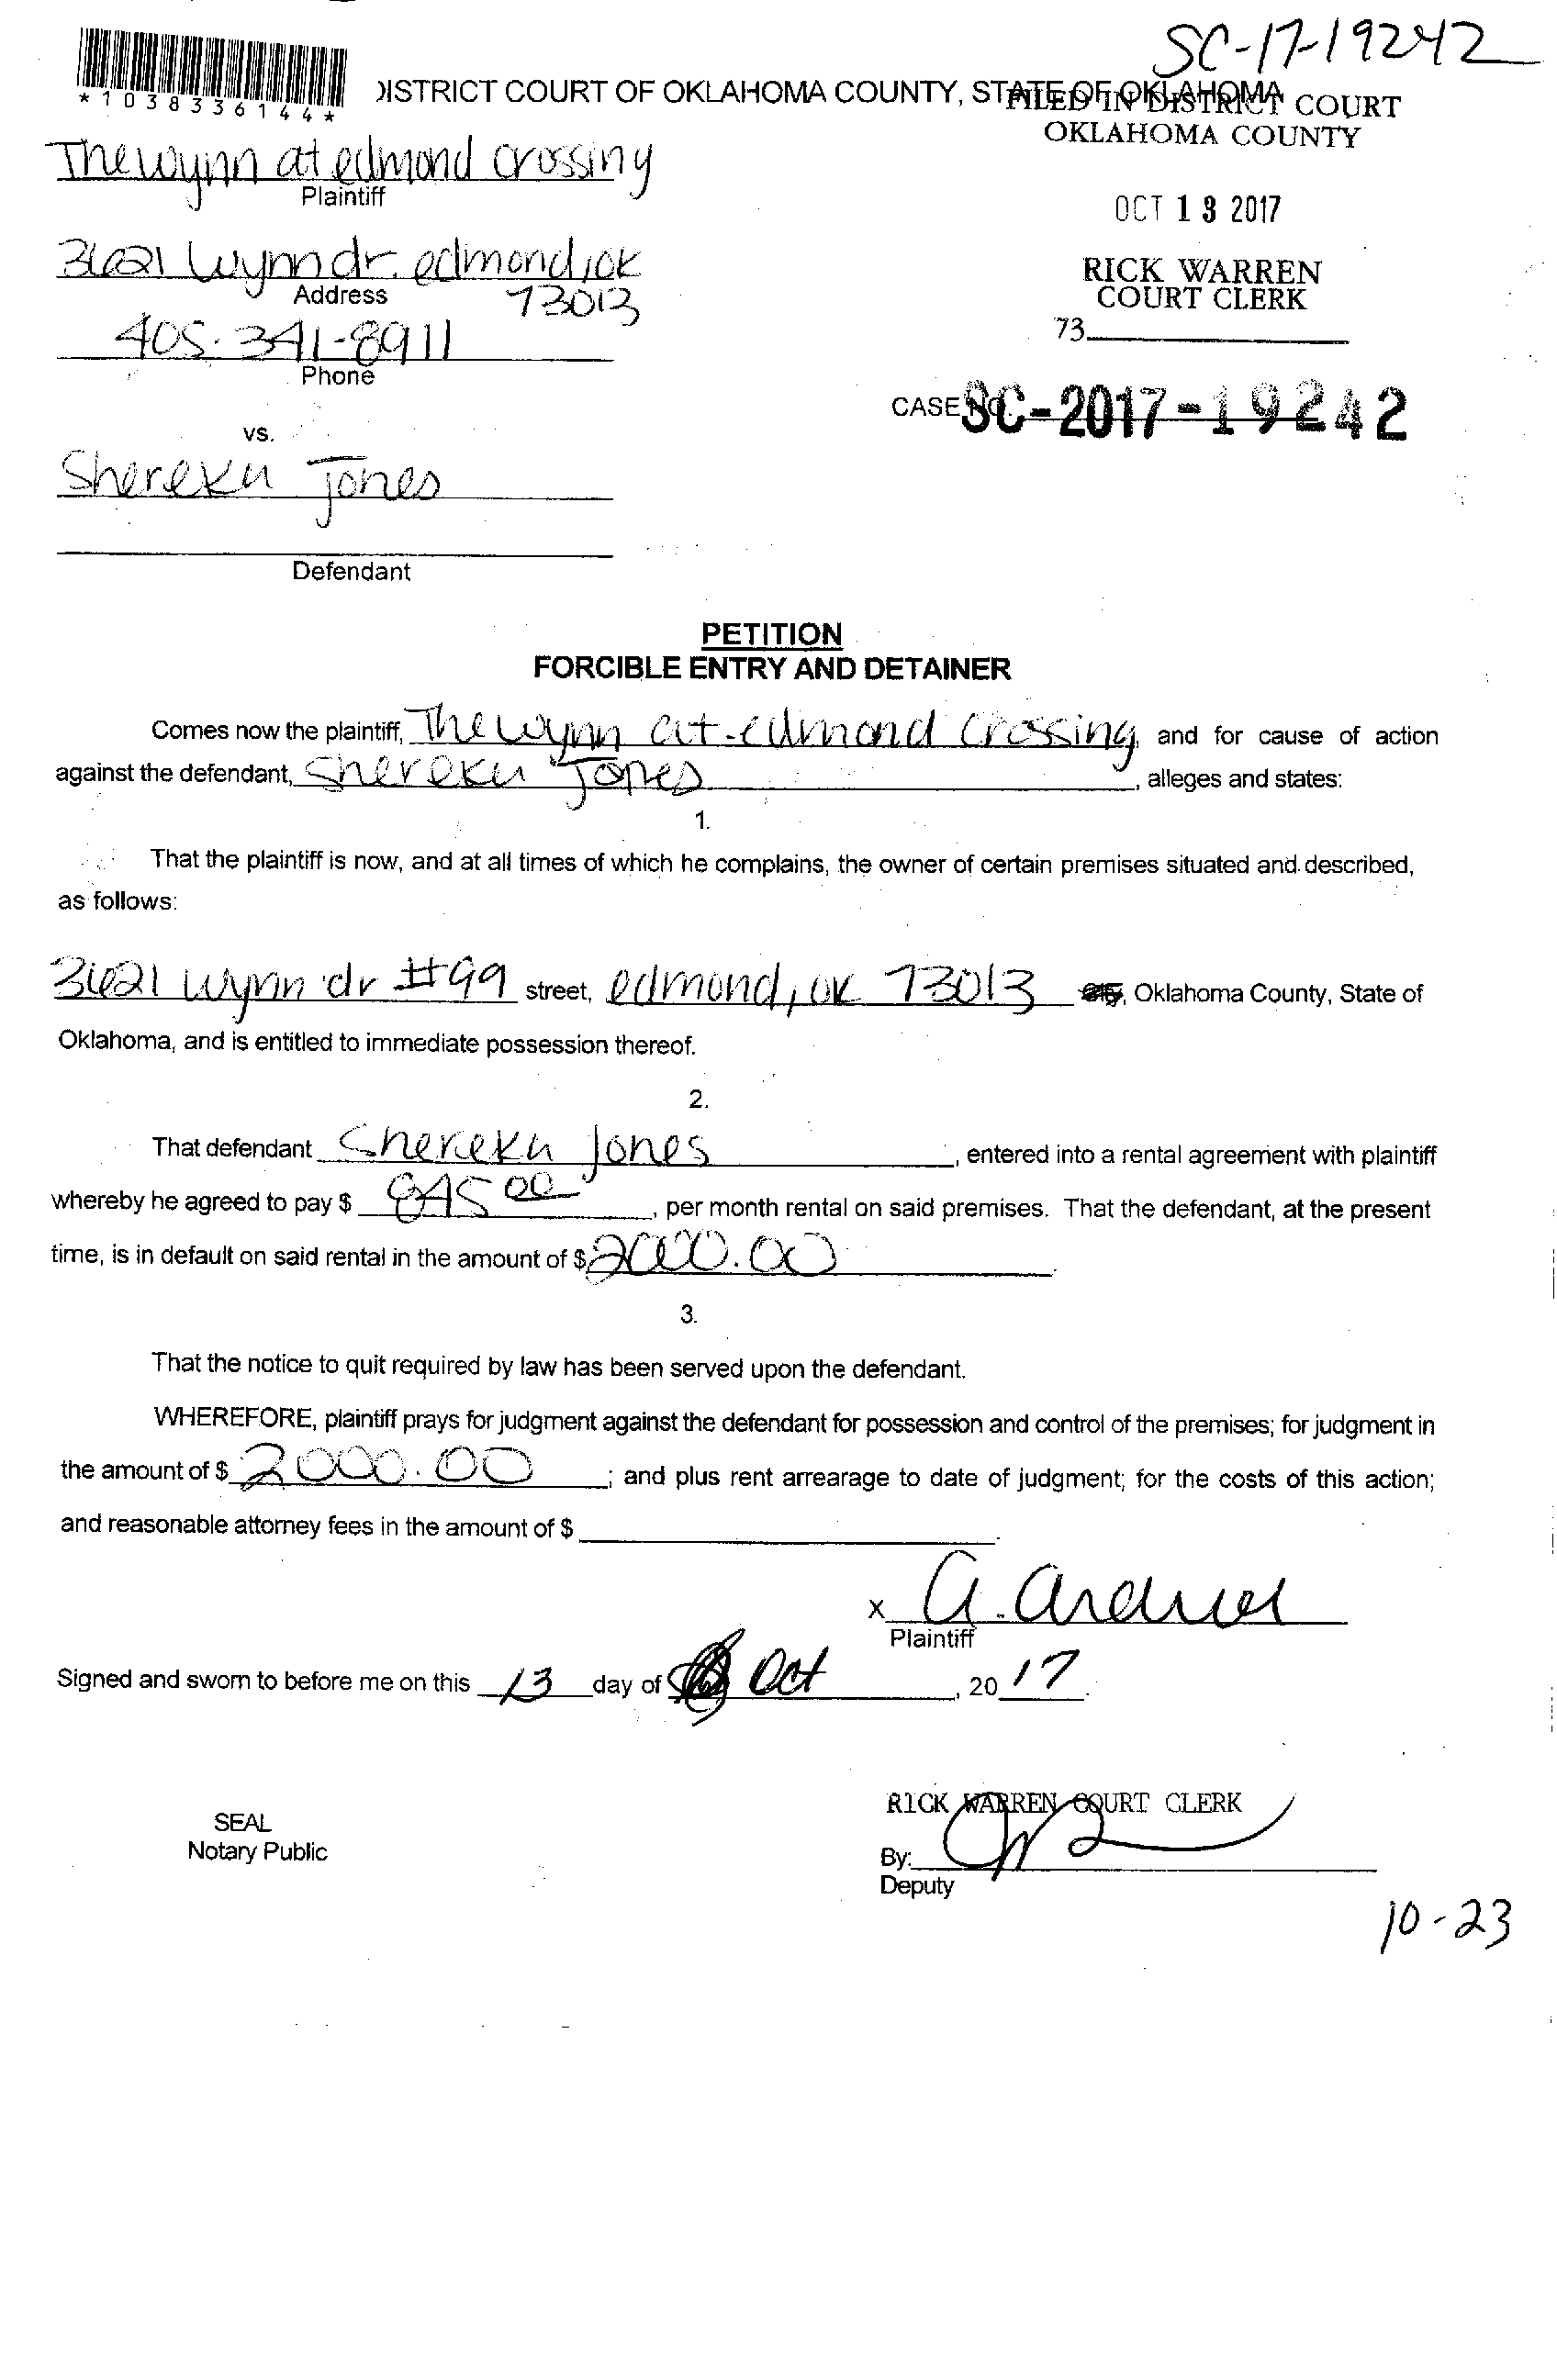 SC-17-19242
*1038336144*
DISTRICT COURT OF OKLAHOMA COUNTY, STATE OF OKLAHOMA
FILED IN DISTRICT COURT
OKLAHOMA COUNTY
The wynn at edmond crossing
Plaintiff
OCT 13 2017
3621 Wynn dr. edmond, ok
Address
73013
RICK WARREN
COURT CLERK
405-341-8911
Phone
73
CASE NO. SC-2017-19242
vs.
Shereka Jones
Defendant
PETITION
FORCIBLE ENTRY AND DETAINER
Comes now the plaintiff, The wynn at edmond crossing, and for cause of action
against the defendant, Shereka Jones, alleges and states:
1.
That the plaintiff is now, and at all times of which he complains, the owner of certain premises situated and described,
as follows:
3621 wynn dr #99 street, edmond, ok 73013, Oklahoma County, State of
Oklahoma, and is entitled to immediate possession thereof.
2.
That defendant Shereka Jones, entered into a rental agreement with plaintiff
whereby he agreed to pay $ 845 00, per month rental on said premises. That the defendant, at the present
time, is in default on said rental in the amount of $2000.00.
3.
That the notice to quit required by law has been served upon the defendant.
WHEREFORE, plaintiff prays for judgment against the defendant for possession and control of the premises; for judgment in
the amount of $ 2000.00; and plus rent arrearage to date of judgment; for the costs of this action;
and reasonable attorney fees in the amount of $.
x
Plaintiff
Signed and sworn to before me on this 13 day of Oct, 20 17.
RICK WARREN COURT CLERK
SEAL
Notary Public
By:
Deputy
10-23